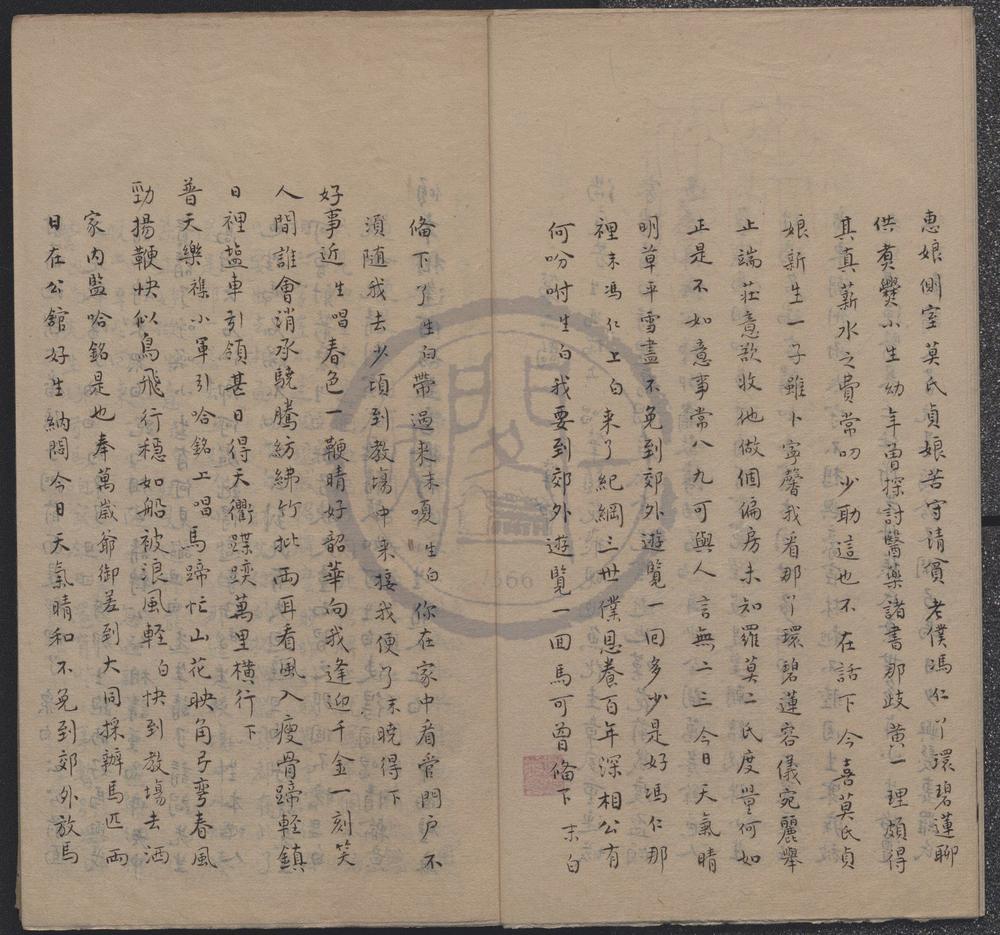 惠娘側室莫氏貞娘苦守請貫老僕馮仁丫環碧蓮聊
供煮爨小生幼年曾探討醫藥諸書那歧黃一理頗得
其真薪水之費常叨少助這也不在話下今喜莫氏貞
娘新生一子雖卜寧馨我看那丫環碧蓮容儀宛麗舉
止端莊意欲收他做個偏房未知羅莫二氏度量何如
正是不如意事常八九可與人言無二三今日天氣晴
明草平雪盡不免到郊外遊覧一回多少是好馮仁那
裡末馮仁上白来了紀綱三世僕恩養百年深相公有
何吩咐生白我要到郊外遊覧一回馬可曾俻下末白
俻下了生白帶過来末嗄生白你在家中看管門户不
湏随我去少頃到教塲中来接我便了末曉得下
好事近生唱春色一鞭晴好韶華向我逢迎千金一刻笑
人間誰會消承驍騰紡紼竹批兩耳看風入瘦骨蹄輕鎮
日裡塩車引領甚日得天衢蹀躞萬里橫行下
普天樂襍小軍引哈銘上唱馬蹄忙山花映角弓彎春風
勁揚鞭快似鳥飛行穏如船被浪風輕白快到教場去洒
家内監哈銘是也奉萬歲爺御差到大同採辦馬匹兩
日在公舘好生納悶今日天氣晴和不免到郊外放馬
1366